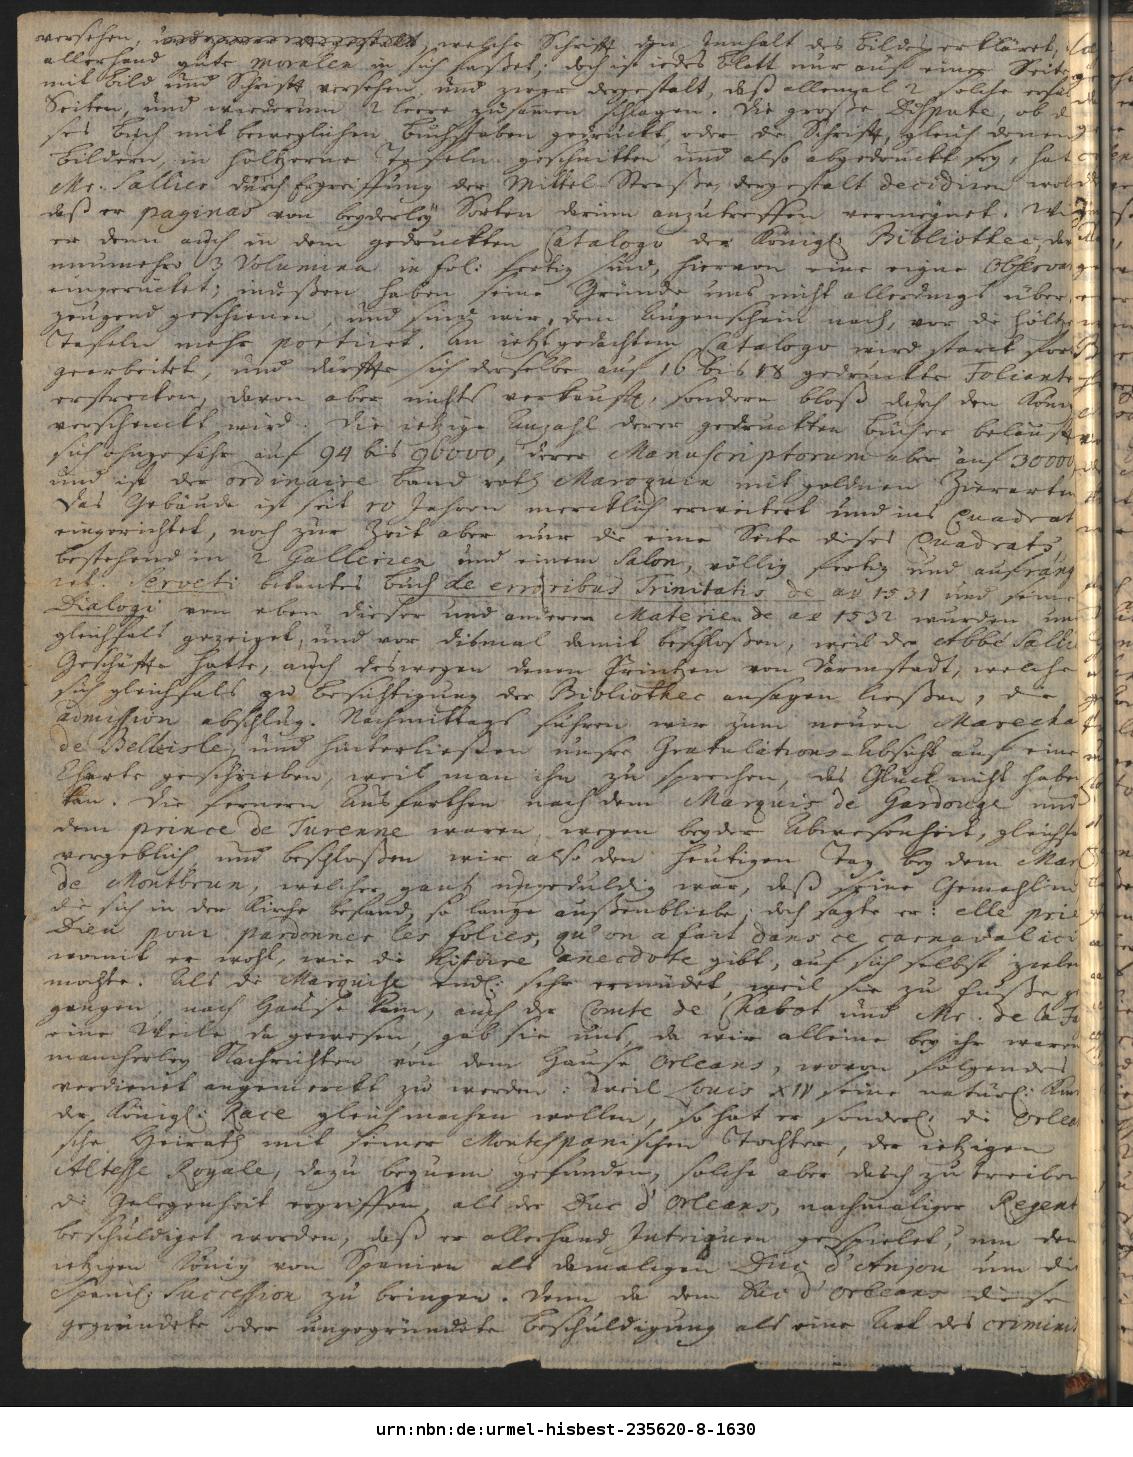 versehen, welche Schrifft den Innhalt des Bildes erkläret,
allerhand gute Moralen in sich faßet; doch ist iedes Blatt nur auf einer Seite
mit Bild und Schrifft versehen, und zwar dergestalt, daß allemal 2 solche
Seiten, und wiederum 2 leere zusammen schlagen. Die große Dispute, ob
ses Buch mit beweglichen Buchstaben gedruckt, oder die Schrifft, gleich denen
Bildern, in höltzerne Tafeln geschnitten und also abgedruckt sey, hat
Mr. Sallier durch Ergreiffung der Mittel-Straße, dergestalt decidiren
daß er paginas von beyderley Sorten darinn anzutreffen vermeynet.
er denn auch in dem gedruckten Catalogo der Königl. Bibliothec,
nunmehro 3 Volumina in fol: fertig sind, hiervon eine eigne
eingerücket; indeßen haben seine Gründe uns nicht allerdings über
zeugend geschienen, und sind wir, dem Augenschein nach, vor die
Tafeln mehr portiret. An ietztgedachtem Catalogo wird starck
gearbeitet, und dürffte sich derselbe auf 16 bis 18 gedruckte
erstrecken, davon aber nichts verkaufft, sondern bloß durch den
verschenckt wird. Die ietzige Anzahl derer gedruckten Bücher
sich ohngefähr auf 94 bis 96000, derer Manuscriptorum aber auf 30000,
und ist der ordinaire Band roth Maroquin mit goldnen Zierarten
Das Gebäude ist seit 10 Jahren mercklich erweitert und ins Quadrat
eingerichtet, noch zur Zeit aber nur die eine Seite dieses Quadrats,
bestehend in 2 Gallerien und einem Salon, völlig fertig und
ret. Serveti bekantes Buch de erroribus Trinitatis de ao 1531 und
Dialogi von eben dieser und anderen Materien de ao 1532 wurden
gleichfals gezeiget, und vor dismal damit beschloßen, weil der Abbé
Geschäffte hatte, auch deswegen denen Printzen von Darmstadt, welche
sich gleichfals zu Besichtigung der Bibliothec ansagen ließen, die
admission abschlug. Nachmittags fuhren wir zum neuen
de Belleisle, und hinterließen unsre Gratulations-Absicht auf eine
Charte geschrieben, weil man ihn zu sprechen, das Glück nicht haben
kan. Die fernern Ausfarthen nach dem Marquis de Gardouge und
dem prince de Turenne waren, wegen beyder Abwesenheit,
vergeblich, und beschloßen wir also den heutigen Tag bey dem
de Montbrun, welcher gantz ungeduldig war, daß seine Gemahlin
die sich in der Kirche befand, so lange außenbliebe; doch sagte er: elle prie
Dieu pour pardonner les folies, qu'on a fait dans ce carnaval ici
womit er wohl, wie die Histoire anecdote gibt, auf sich selbst
mochte. Als die Marquise endl: sehr ermüdet, weil sie zu Fuße
gangen, nach Hause kam, auch der Comte de Chabot und Mr. de la
eine Weile da gewesen, gab sie uns, da wir alleine bey ihr waren
mancherley Nachrichten von dem Hause Orleans, wovon folgendes
verdienet angemerckt zu werden: Weil Louis XIV seine natürl:
der Königl: Race gleich machen wollen, so hat er sonderl: die
sche Heirath mit seiner Montespanischen Tochter, der ietzigen
Altesse Royale, dazu bequem gefunden, solche aber durch zu treiben
die Gelegenheit ergriffen, als der Duc d'Orleans, nachmaliger Regent
beschuldiget worden, daß er allerhand Intriguen gespielet, um den
ietzigen König von Spanien als damaligen Duc d'Anjou um die
Spanil: Succession zu bringen. Denn da dem Duc d'Orleans diese
gegründete oder ungegründete Beschuldigung als eine Art des
urn:nbn:de:urmel-hisbest-235620-8-1630